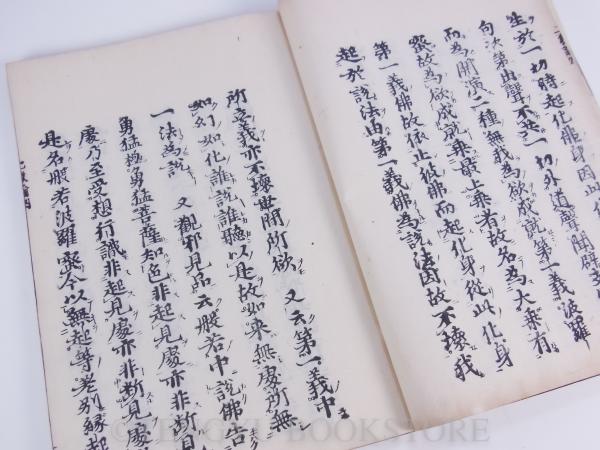 生於一切時起化佛身因此
向次第出聲不空一切外道聲開辟
而為開演二種無我為欲成就第一義波羅
蜜故為欲成就乘最上乘者故名為大乘有
第一義佛故依止彼佛而起化身從此化身
起於說法由第一義佛為說法因故不壞我
所立義亦不壞世間所欲 又云第一義中
如幻如化誰說誰聽以是故如來無處所無
一法為說 又觀邪見品云般若中說佛告
勇猛極勇猛菩薩知色非起見處亦非斷見
處乃至受想行識非起見處亦非斷見處
是名般若波羅蜜今以無起等差別緣起
BOOKSTORE